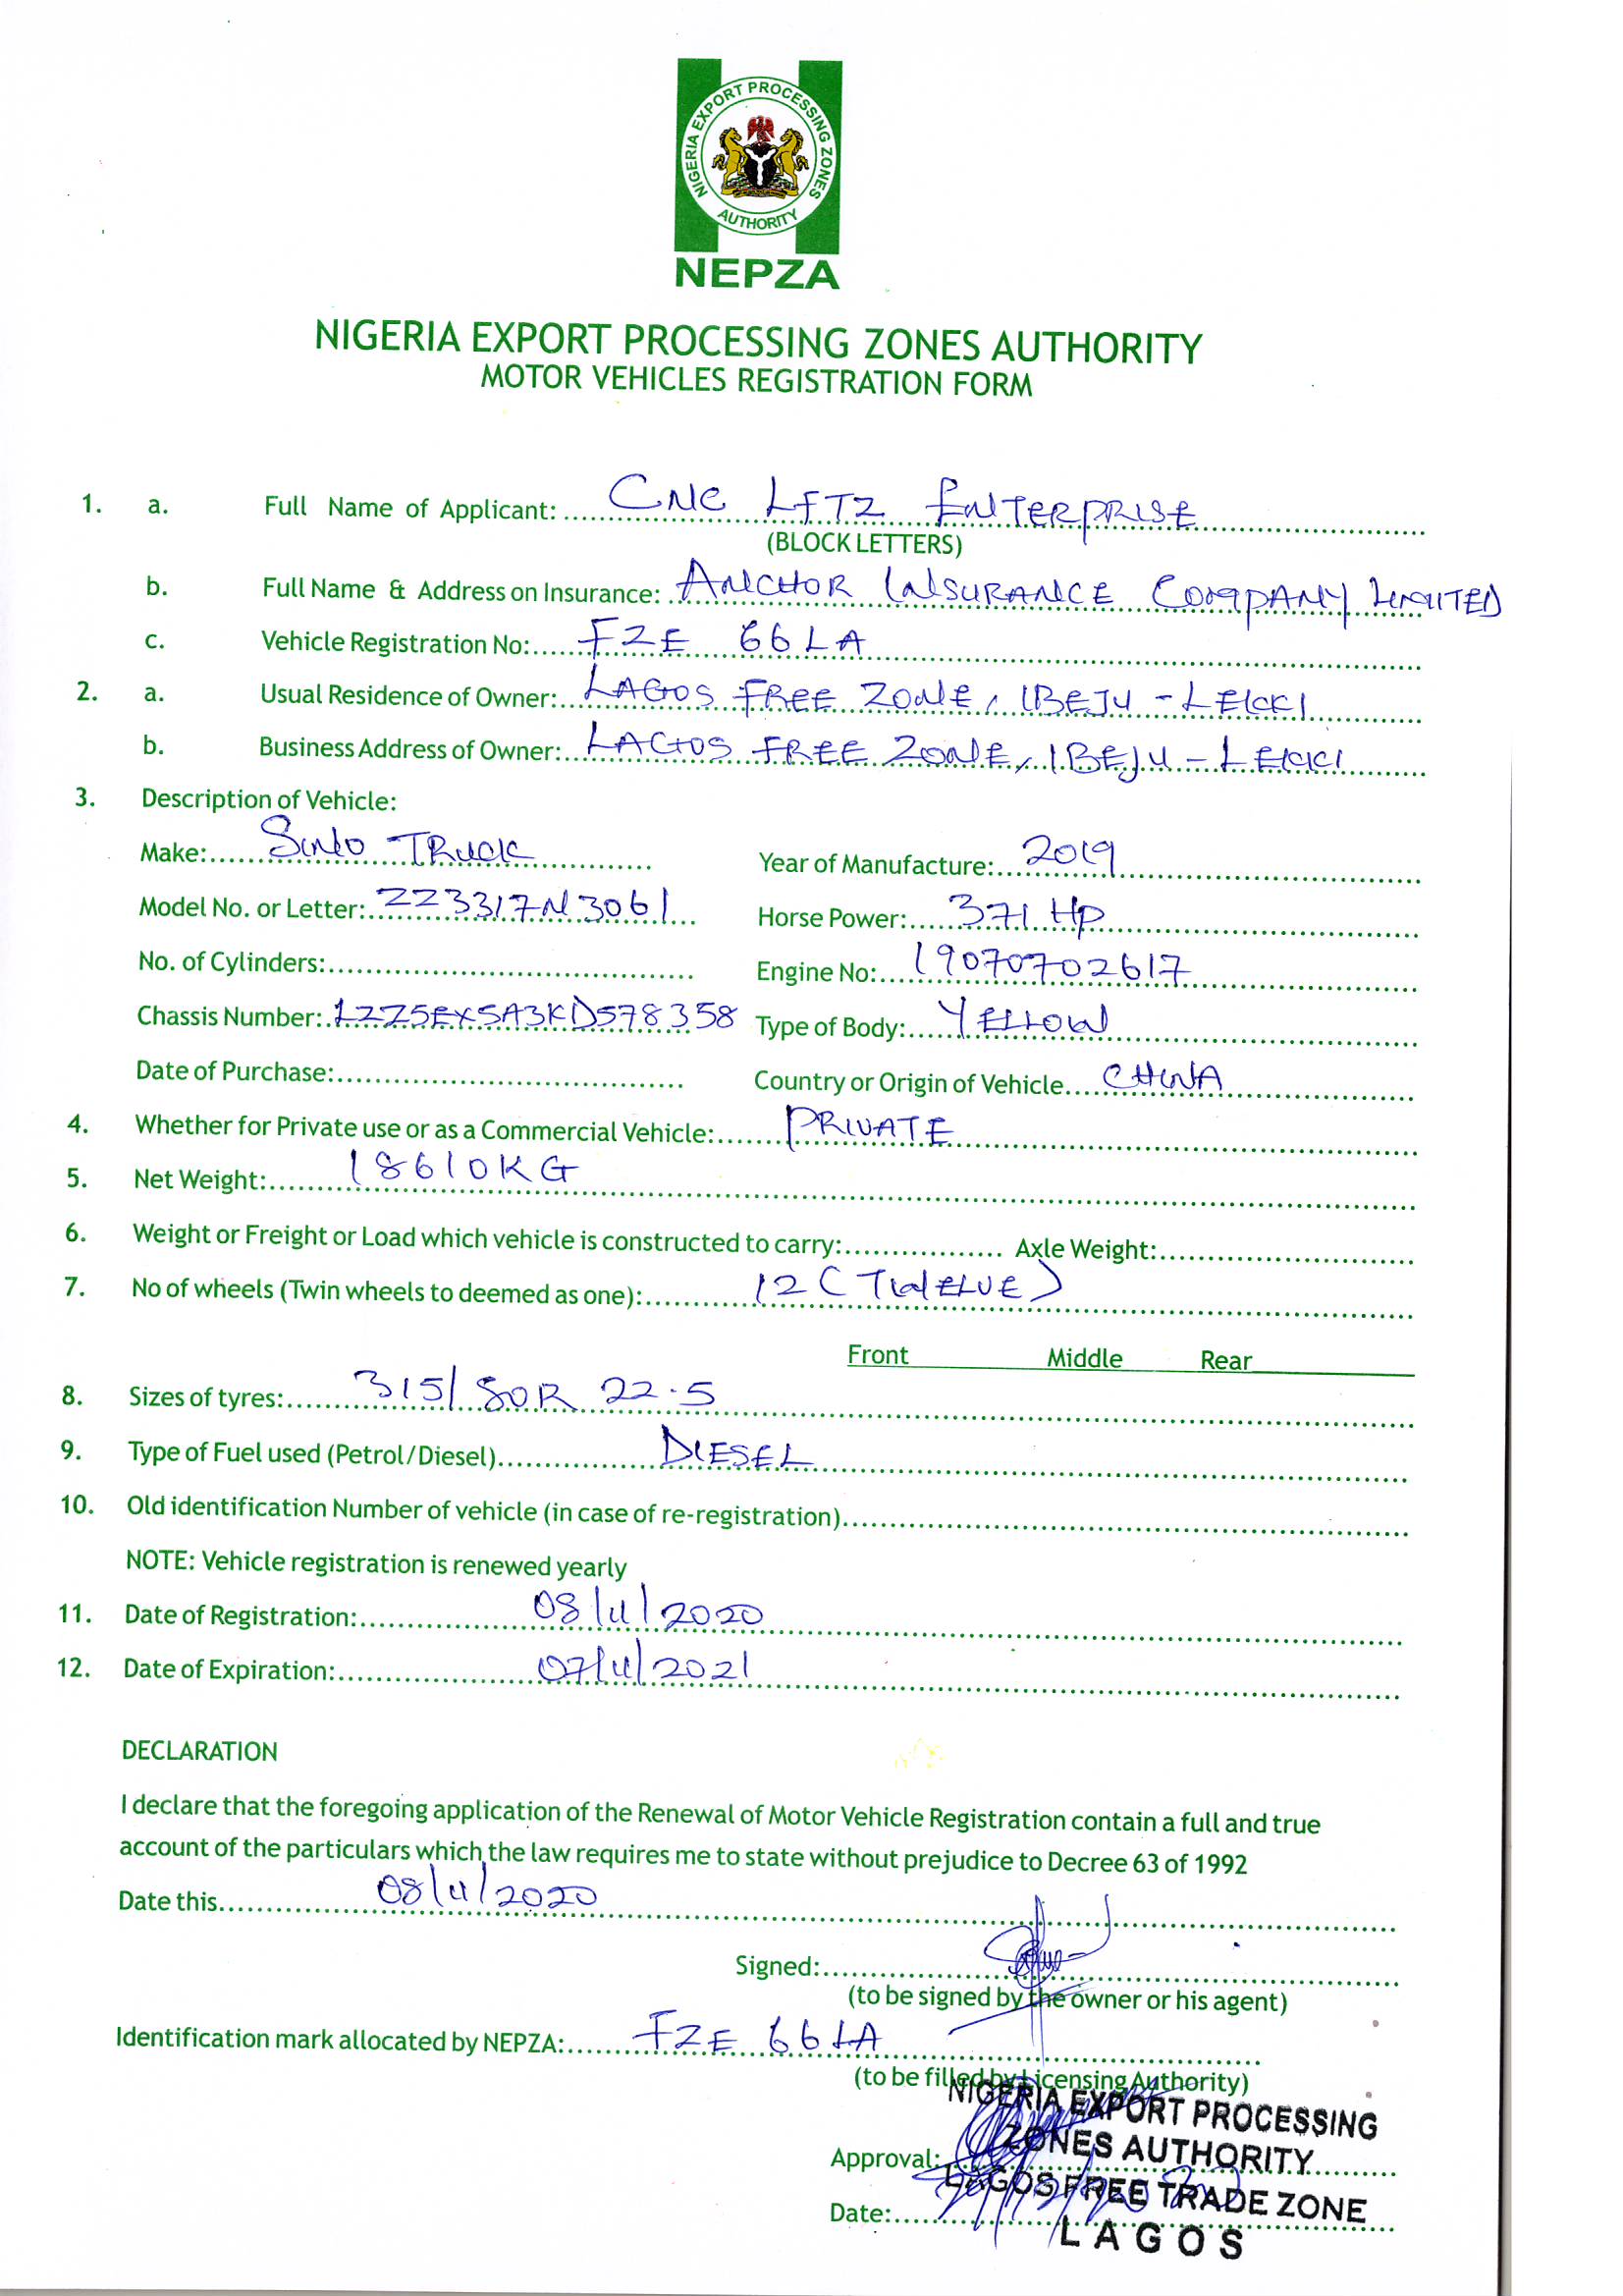 NIGERIA EXPORT PROCESSING ZONES
AUTHORITY
NEPZA
NIGERIA EXPORT PROCESSING ZONES AUTHORITY
MOTOR VEHICLES REGISTRATION FORM
1. a. Full Name of Applicant: CNC LFTZ ENTERPRISE
(BLOCK LETTERS)
b. Full Name & Address on Insurance: ANCHOR INSURANCE COMPANY LIMITED
c. Vehicle Registration No: FZE 66 LA
2. a. Usual Residence of Owner: LAGOS FREE ZONE, IBEJU - LEKKI
b. Business Address of Owner: LAGOS FREE ZONE, IBEJU - LEKKI
3. Description of Vehicle:
Make: SINO TRUCK Year of Manufacture: 2019
Model No. or Letter: ZZ3317N3061 Horse Power: 371 HP
No. of Cylinders: Engine No: 19070702617
Chassis Number: LZZ5EXSA3KD578358 Type of Body: YELLOW
Date of Purchase: Country or Origin of Vehicle CHINA
4. Whether for Private use or as a Commercial Vehicle: PRIVATE
5. Net Weight: 18610KG
6. Weight or Freight or Load which vehicle is constructed to carry: Axle Weight:
7. No of wheels (Twin wheels to deemed as one): 12 (TWELVE)
Front Middle Rear
8. Sizes of tyres: 315/80R 22.5
9. Type of Fuel used (Petrol/Diesel) DIESEL
10. Old identification Number of vehicle (in case of re-registration)
NOTE: Vehicle registration is renewed yearly
11. Date of Registration: 08/11/2020
12. Date of Expiration: 07/11/2021
DECLARATION
I declare that the foregoing application of the Renewal of Motor Vehicle Registration contain a full and true
account of the particulars which the law requires me to state without prejudice to Decree 63 of 1992
Date this 08/11/2020
Signed:
(to be signed by the owner or his agent)
Identification mark allocated by NEPZA: FZE 66 LA
(to be filled by Licensing Authority)
NIGERIA EXPORT PROCESSING
ZONES AUTHORITY
Approval:
LAGOS FREE TRADE ZONE
Date:
LAGOS